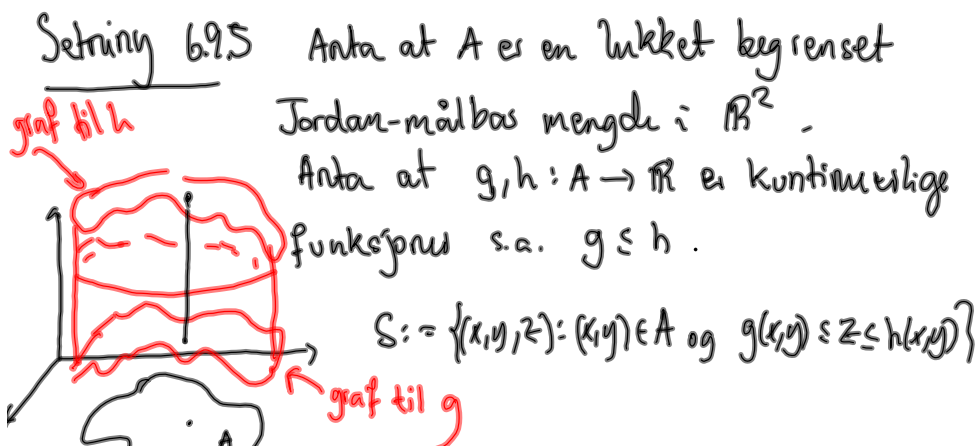 Setning 6.9.5 Anta at A er en lukket begrenset
graf til h
Jordan-målbar mengde i ℝ².
Anta at g,h : A → ℝ er kontinuerlige
funksjoner s.a. g ≤ h .
S := {(x,y,z) : (x,y) ∈ A og g(x,y) ≤ z ≤ h(x,y)}
graf til g
A